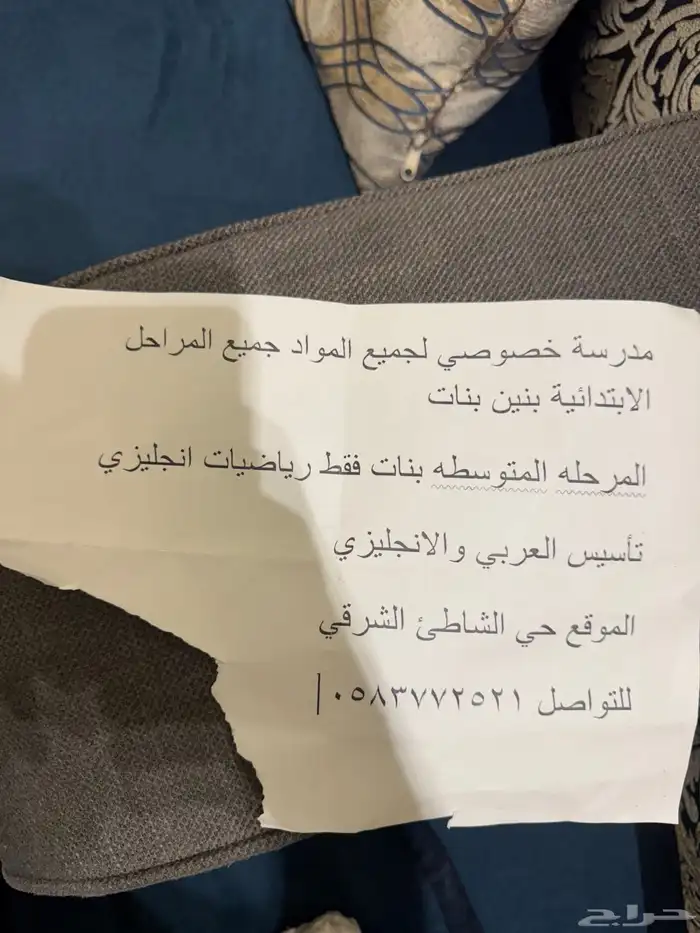 مدرسة خصوصي لجميع المواد جميع المراحل
الابتدائية بنين بنات
المرحله المتوسطه بنات فقط رياضيات انجليزي
تأسيس العربي والانجليزي
الموقع حي الشاطئ الشرقي
للتواصل ٠٥٨٣٧٧٢٥٢١
حراج